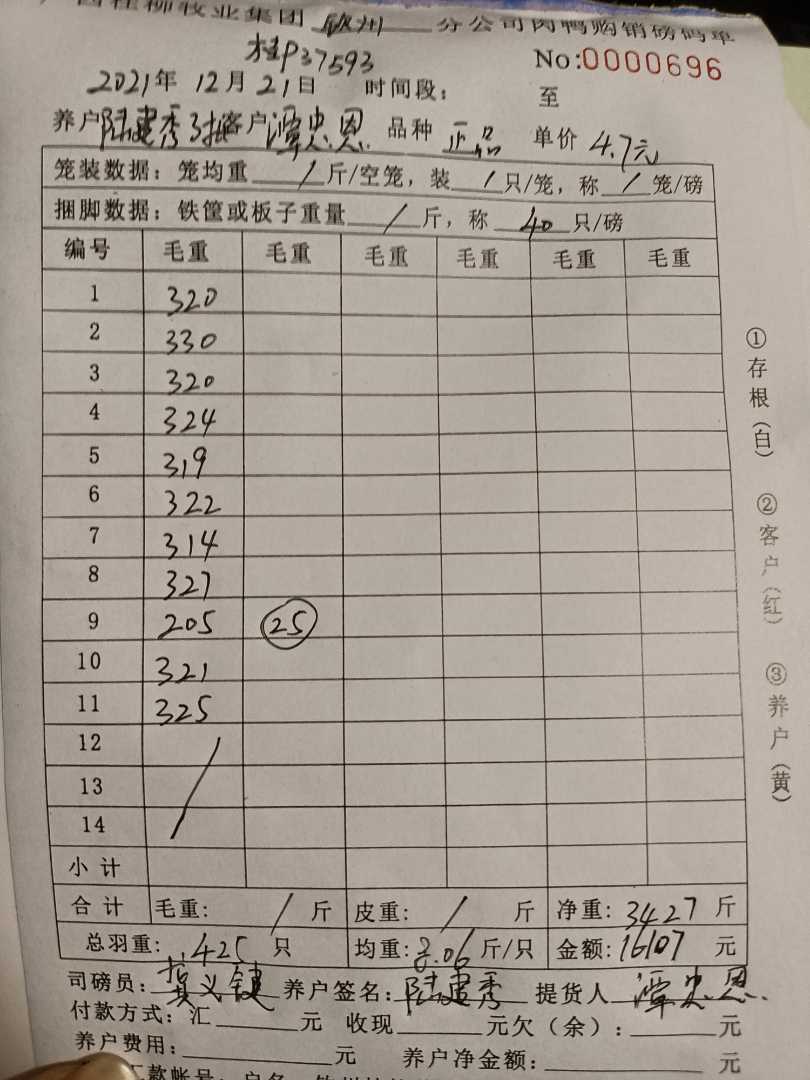 广西桂柳牧业集团 钦州 分公司肉鸭购销磅码单
桂P37593 No:0000696
2021年 12月 21日 时间段: 至
养户 陆建秀 客户 潭忠恩 品种 正品 单价 4.7元
笼装数据: 笼均重 / 斤/空笼, 装 / 只/笼, 称 / 笼/磅
捆脚数据: 铁筐或板子重量 / 斤, 称 40 只/磅
编号 毛重 毛重 毛重 毛重 毛重 毛重
1 320
2 330
3 320
4 324
5 319
6 322
7 314
8 327
9 205 25
10 321
11 325
12 /
13
14
小计
合计 毛重: / 斤 皮重: / 斤 净重: 3427 斤
总羽重: 425 只 均重: 8.06 斤/只 金额: 16107 元
司磅员: 义键 养户签名: 陆建秀 提货人 潭忠恩
付款方式: 汇 元 收现 元欠(余): 元
养户费用: 元 养户净金额: 元
汇款帐号: 户名: 钦州
①存根(白) ②客户(红) ③养户(黄)